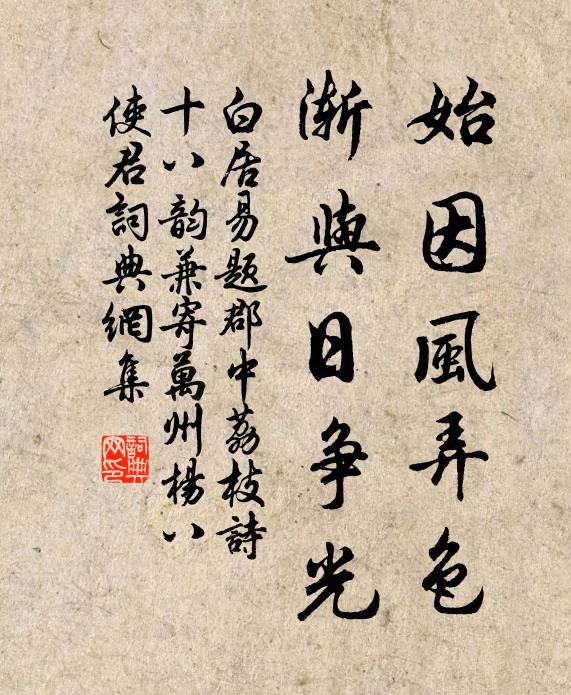 始因風弄色
漸與日争光
白居易題郡中荔枝詩
十八韵兼寄萬州楊八
使君詞典網集
詞典網印